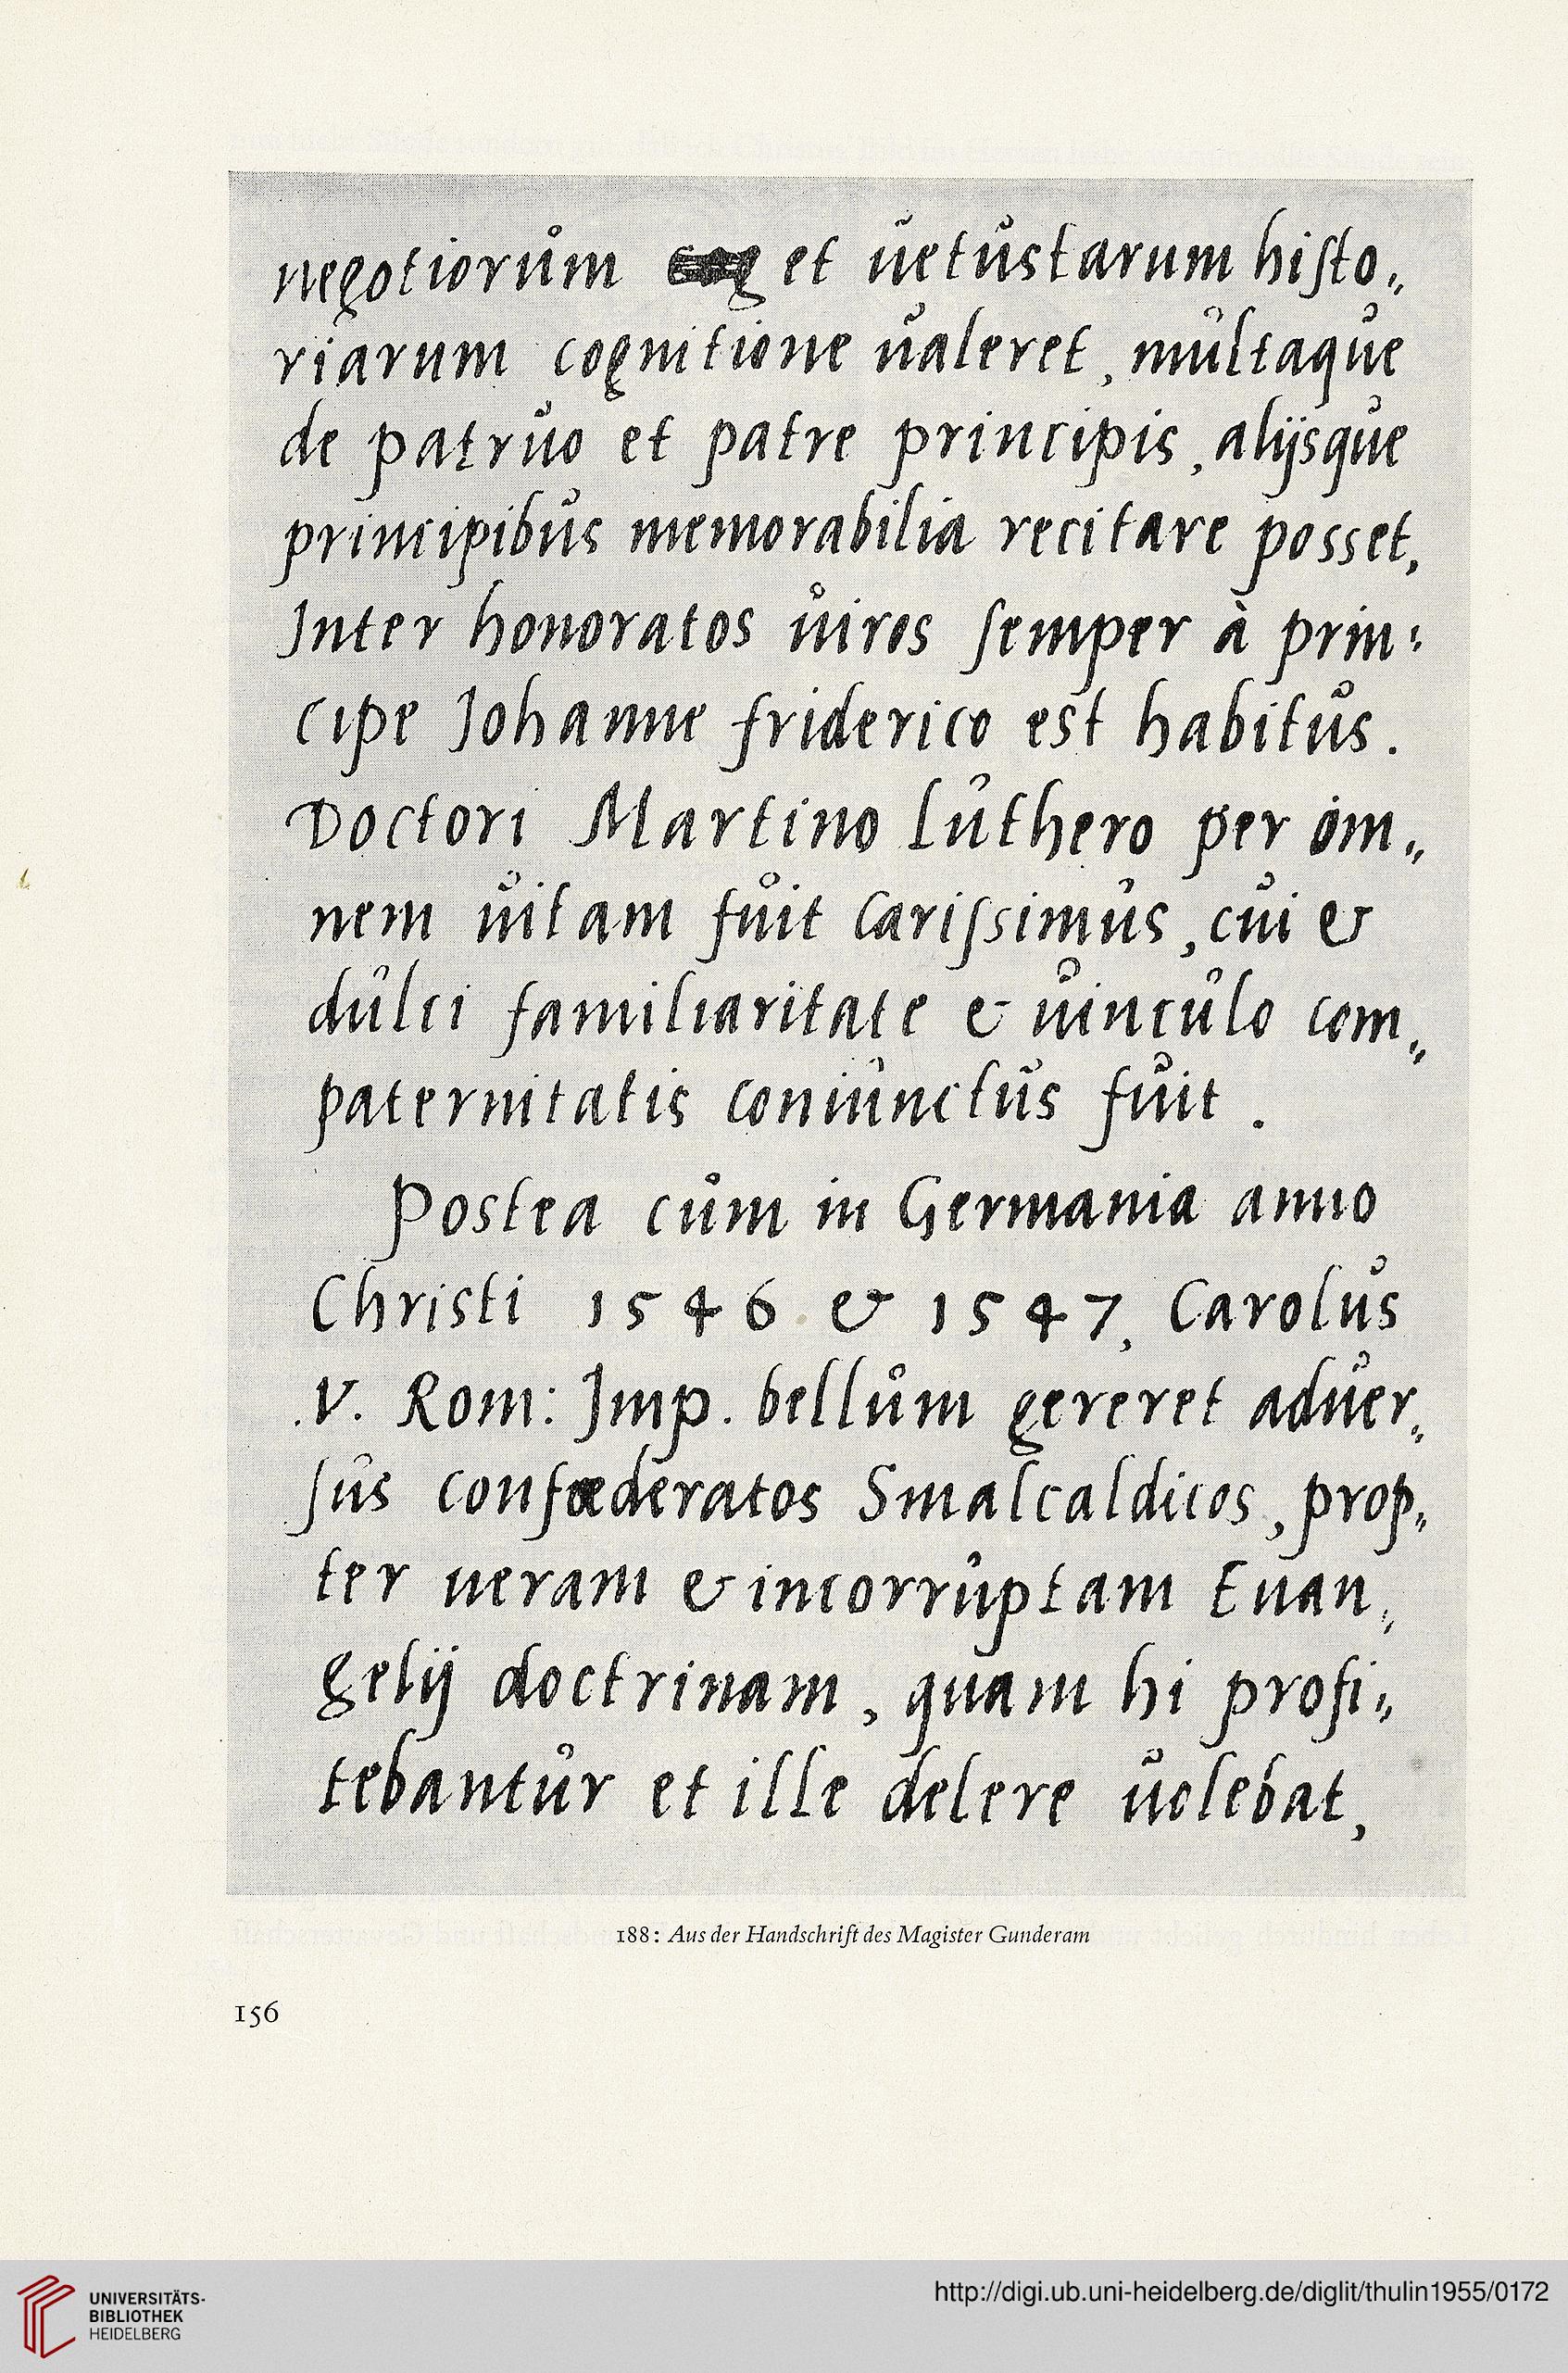 negotiorům et ůetůstarum hiſto„
riarum cognitione ůaleret, můltaqůe
de patrůo et patre principis, alijsqůe
principibůs memorabilia recitare posset,
Inter honoratos ůiros ſemper à prin:
cipe Johanne friderico est habitůs.
Doctori Martino Lůthero per om„
nem ůitam fůit cariſsimůs, cůi &
důlci familiaritate & ůincůlo com„
paternitatis coniůnctůs fůit.
Postea cům in Germania anno
Christi 1546 & 1547, Carolůs
.V. Rom: Imp. bellům gereret adůer„
ſůs confœderatos Smalcaldicos, prop„
ter ueram & incorrůptam Euan„
gelij doctrinam, quam hi profi„
tebantůr et ille delere ůolebat,
188: Aus der Handschrift des Magister Gunderam
156
UNIVERSITÄTS-
BIBLIOTHEK
HEIDELBERG
http://digi.ub.uni-heidelberg.de/diglit/thulin1955/0172